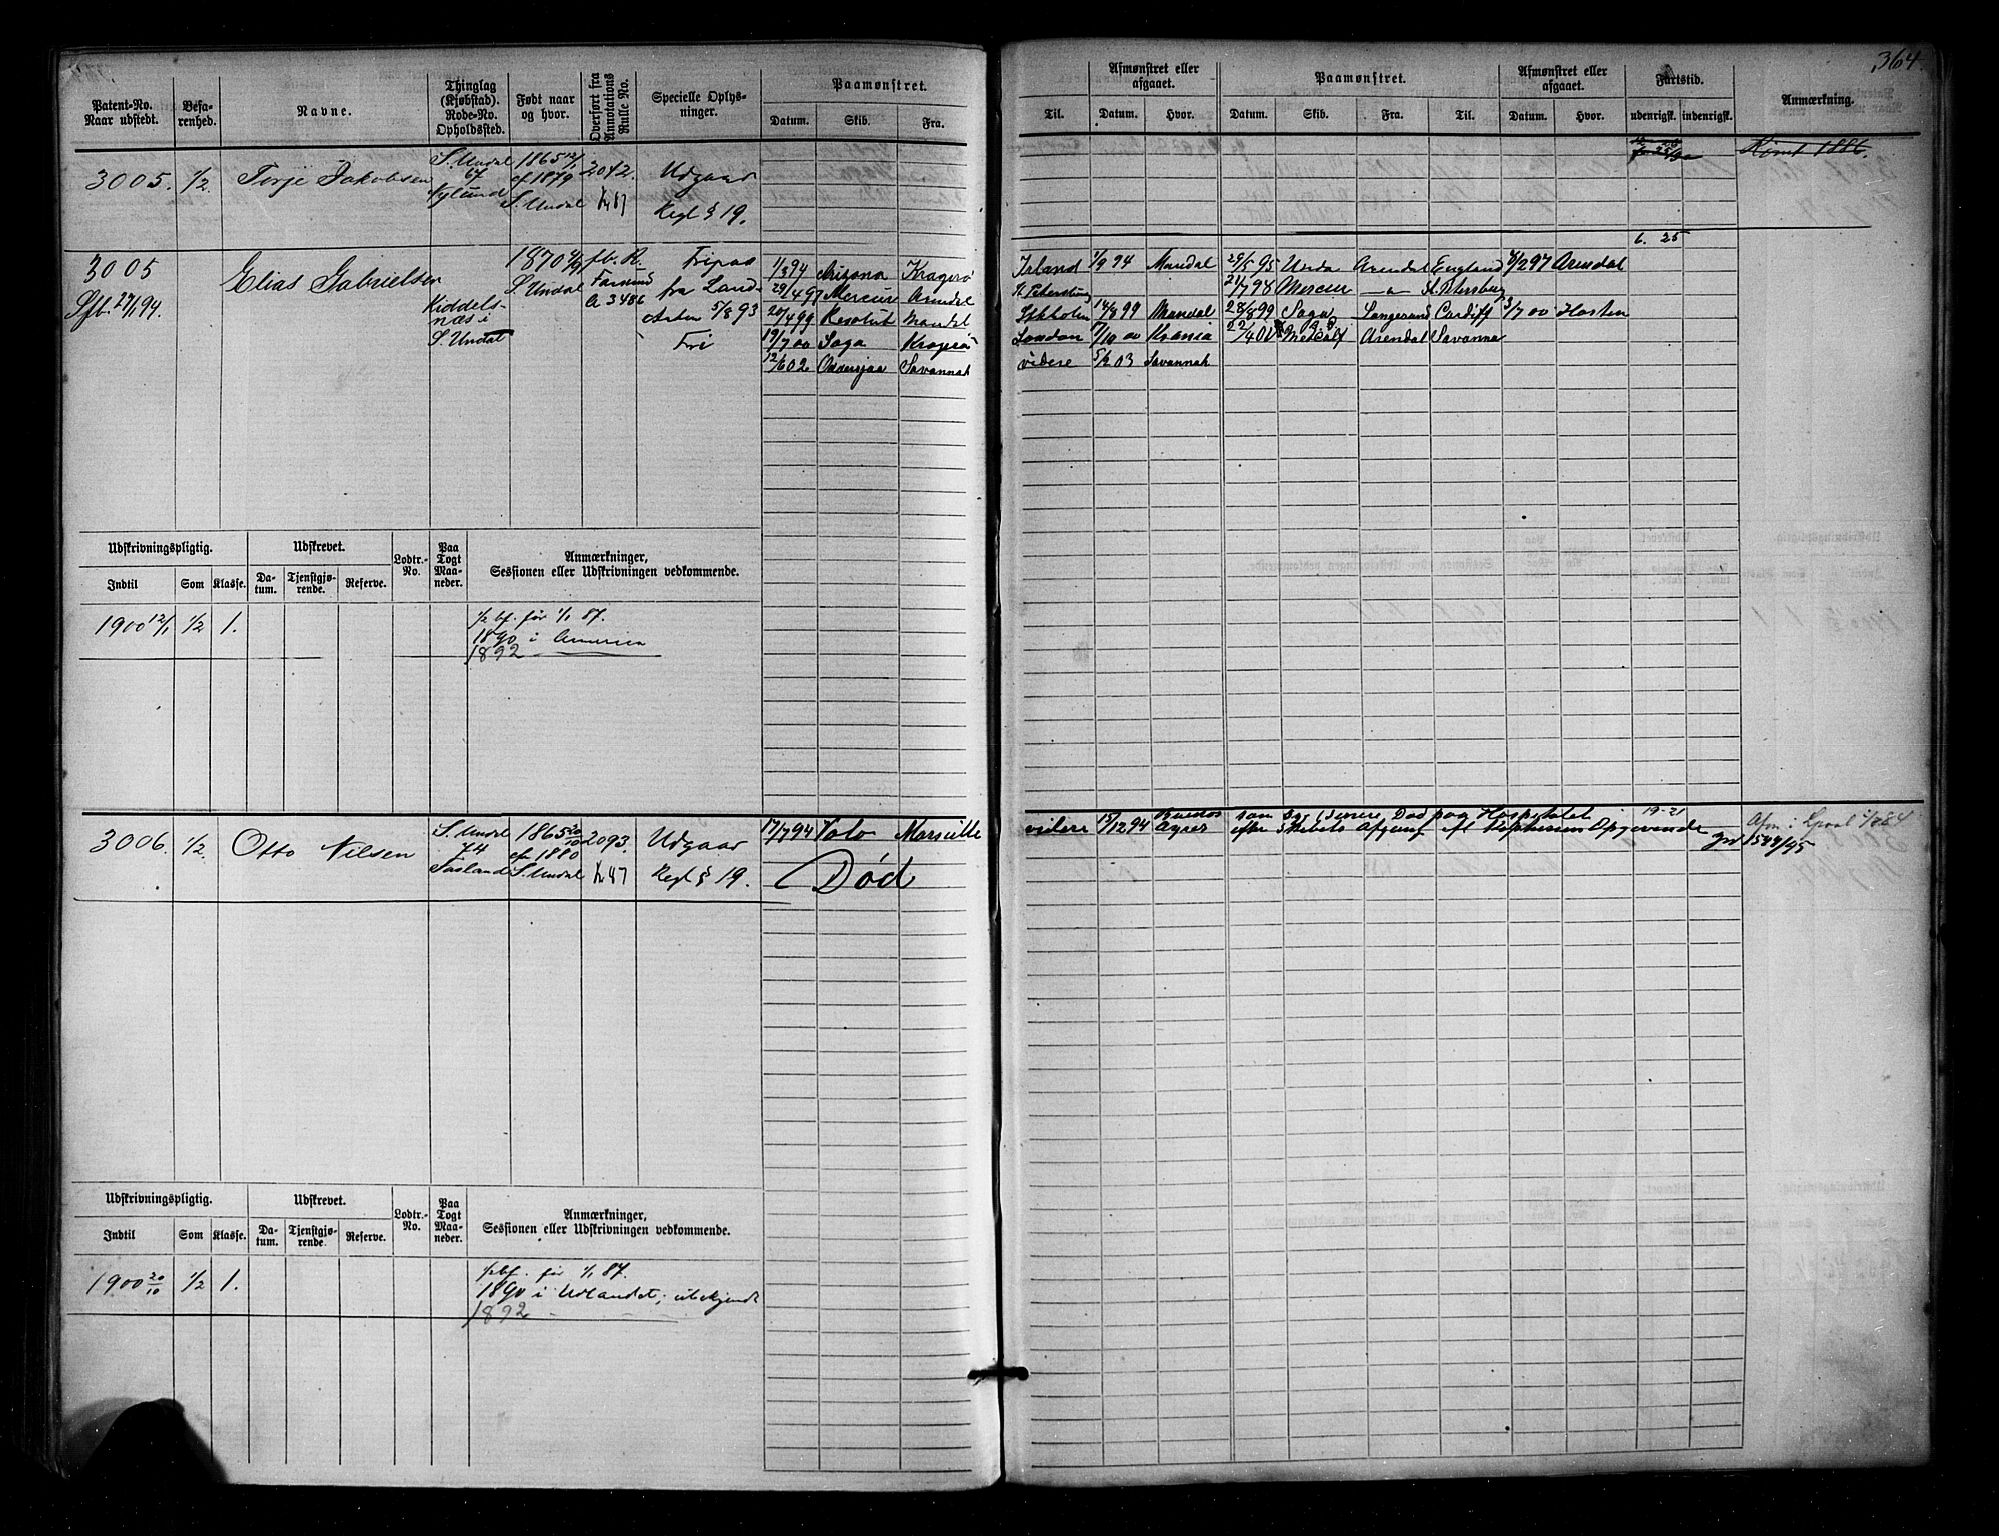 364.
Patent-No. Naar udstedt.
Befa-renhed.
Navne.
Thinglag (Kjøbstad). Rode-No. Opholdssted.
Født naar og hvor.
Overført fra Annotations Rulle No.
Specielle Oplys-ninger.
Paamønstret.
Datum. Skib. Fra.
Til.
Afmønstret eller afgaaet.
Datum. Hvor.
Paamønstret.
Datum. Skib. Fra. Til.
Afmønstret eller afgaaet.
Datum. Hvor.
Fartstid.
udenrigsk. indenrigsk.
Anmærkning.
3005. 1/2 Terje Jakobsen
S. Undal 67 Nylund
1865 12/1 cf. 1879 S. Undal
2042.
Udgaar Regl § 19.
3005
Sfb. 27/1 94.
Elias Gabrielsen
Kiddels-næs i S. Undal
1870 S Undal
fb. R. Farsund A 3486
fra Land- 5/8 93 Fri
1/3 94 Arizona Kragerø Irland 1/9 94 Mandal 29/5 95 Unda Arendal England 297 Arendal
29/4 97 Mercur Arendal St Petersburg 21/7 98 Mercur — a — St. Petersburg
20/4 99 Resolut Mandal Stkholm 14/8 99 Mandal 28/8 99 Saga Langesund Cardiff 3/7 00 Horten
19/7 00 Saga Kragerø London 10 00 Krania 22/4 01 Arendal Savanna
12/6 02 Oddersjaa Savannah videre 5/2 03 Savannah
6. 25
Udskrivningspligtig. Udskrevet. Lodtr.-No. Paa Togt Maa-neder. Anmærkninger, Sessionen eller Udskrivningen vedkommende.
Indtil Som Klasse. Da-tum. Tjenstgjø-rende. Reserve.
1900 12/1 1/2 1.
1/2 bf. før 1/1 87.
1890 i America
1892 —
3006. 1/2. Otto Nilsen
S. Undal 74
1865 20/10 cf. 1880 S. Undal
2093.
Udgaar Regl § 19.
17/7 94 Volo Marseille
Død
videre 15/12 94 Buenos Ayres
som Sg. Senere Død paa Hospitalet
efter Skibets Afgang
19-21
1544/95
Udskrivningspligtig. Udskrevet. Lodtr.-No. Paa Togt Maa-neder. Anmærkninger, Sessionen eller Udskrivningen vedkommende.
Indtil Som Klasse. Da-tum. Tjenstgjø-rende. Reserve.
1900 20/10 1/2 1.
1/2 bf. før 1/1 87.
1890 i Udlandet; ubekjendt
1892 —